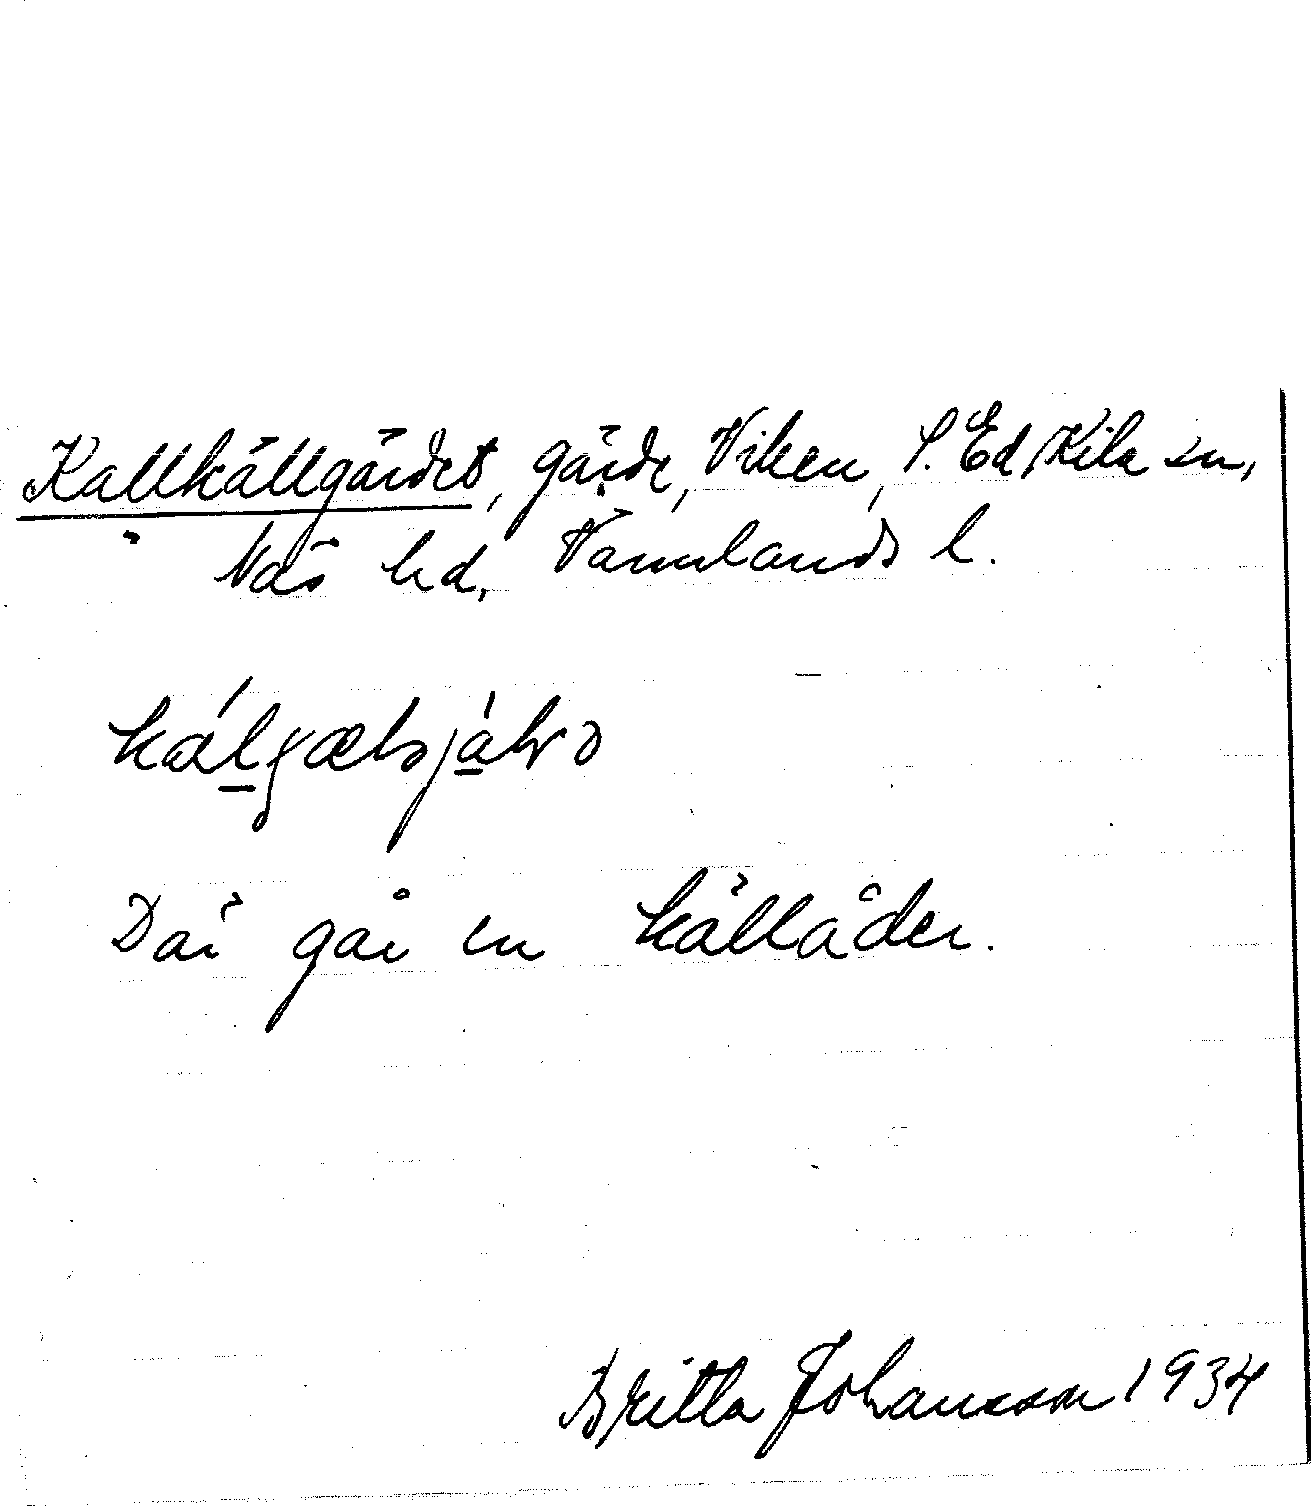 Kallkällgärdet, gärde, Viken, S. Ed, Kila sn,
Näs hd, Värmlands l.
Där går en källåder.
Britta Johansson 1934